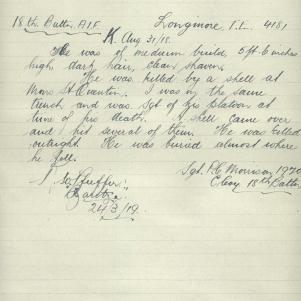 18th Battn. A.I.F. Longmore I.L. 4181
K Aug 31/18
He was of medium build 5ft 6 inches
high, dark hair, clean shaven.
He was killed by a shell at
Mont St Quentin. I was in the same
trench and was Sgt of his platoon at
time of his death. A shell came over
and hit several of them. He was killed
outright. He was buried almost where
he fell.
Sgt. P.C. Morrison 1970
C Coy 18th Battn
24/3/19.